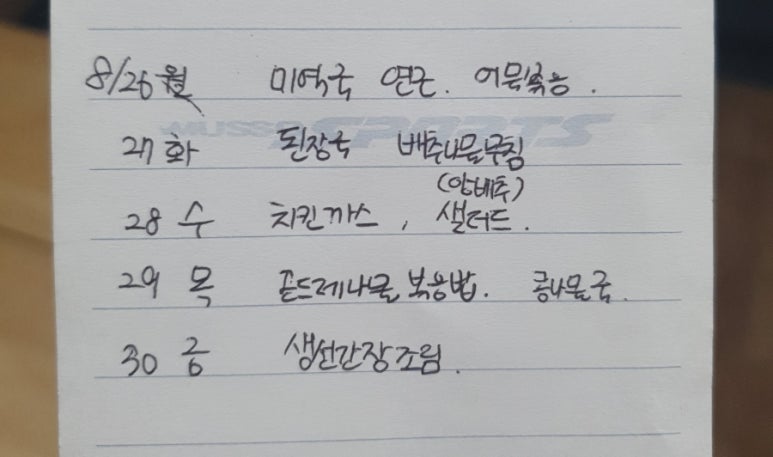 8/26 월 미역국 연근. 어묵볶음.
MUSSO SPORTS
27 화 된장국 배추나물무침
(양배추)
28 수 치킨까스, 샐러드.
29 목 곤드레나물 볶음밥. 콩나물국.
30 금 생선간장조림.